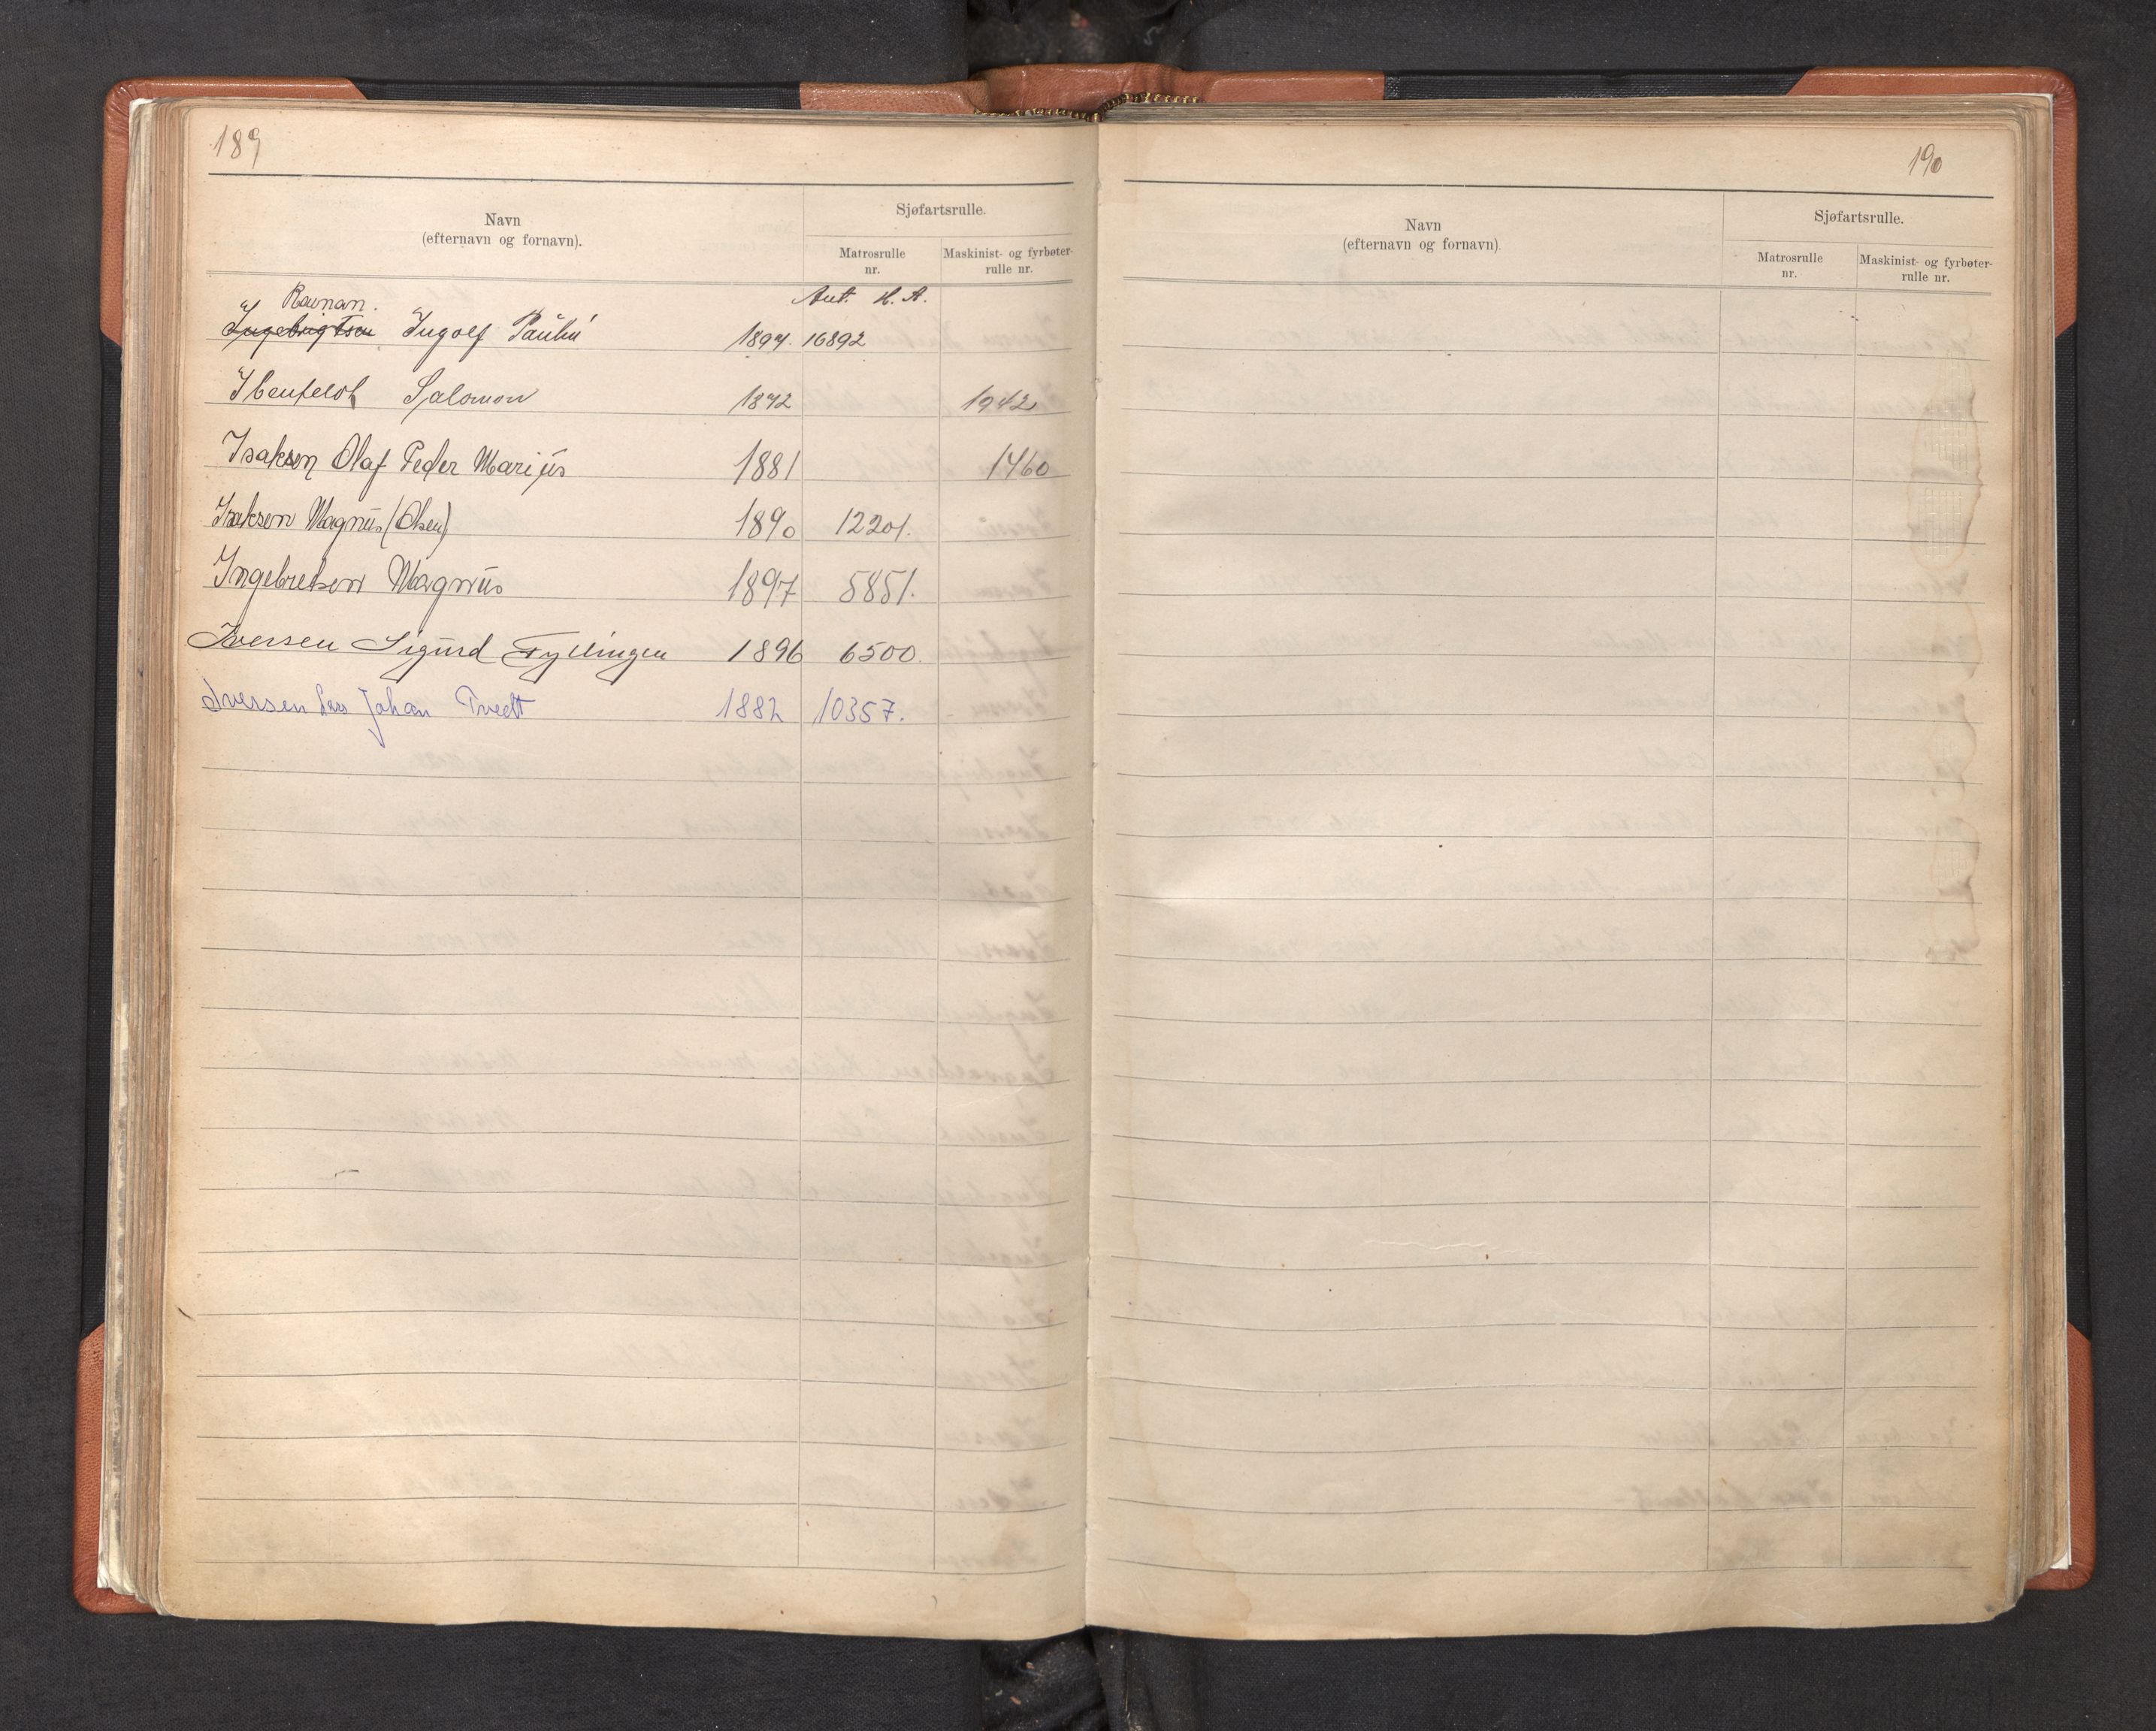 189
Navn
(efternavn og fornavn).
Sjøfartsrulle.
Matrosrulle
nr.
Maskinist- og fyrbøter-
rulle nr.
Ravnan. Aut. H. A.
Ingebrigtsen Ingolf 1894. 16892
Ibenfeldt Salomon 1872 1942
Isaksen Olaf Peder Marius 1881 1460
Isaksen Magnus (Olsen) 1890 12201.
Ingebretsen Magnus 1897 5851.
Iversen Sigurd Fyllingen 1896 6500.
Iversen Lars Johan Tvedt 1882 10357.
190
Navn
(efternavn og fornavn).
Sjøfartsrulle.
Matrosrulle
nr.
Maskinist- og fyrbøter-
rulle nr.